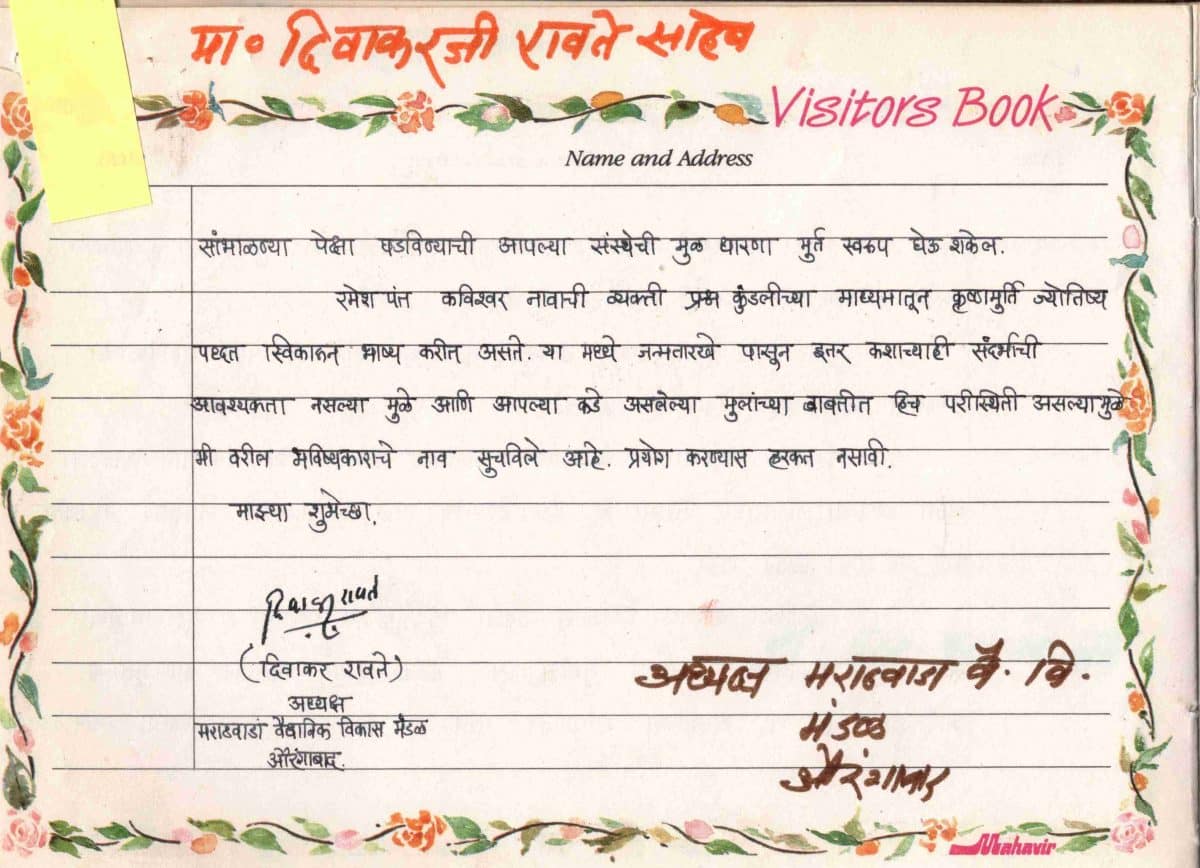 मा० दिवाकरजी रावते साहेब
Visitors Book
Name and Address
सांभाळण्या पेक्षा घडविण्याची आपल्या संस्थेची मुळ धारणा मुर्त स्वरुप घेऊ शकेल.
रमेश पंत कविश्वर नावाची व्यक्ती प्रश्न कुंडलीच्या माध्यमातून कृष्णमुर्ति ज्योतिष्य
पध्दत स्विकारुन भाष्य करीत असते. या मध्ये जन्मतारखे पासून इतर कशाच्याही संदर्भाची
आवश्यकता नसल्या मुळे आणि आपल्या कडे असलेल्या मुलांच्या बाबतीत हिच परीस्थिती असल्यामुळे
मी वरील भविष्यकाराचे नाव सूचविले आहे. प्रयोग करण्यास हरकत नसावी.
माझ्या शुभेच्छा.
दिवाकर रावते
(दिवाकर रावते)
अध्यक्ष
मराठवाडा वैधानिक विकास मंडळ
औरंगाबाद.
अध्यक्ष मराठवाडा वै. वि.
मंडळ
औरंगाबाद
Mahavir